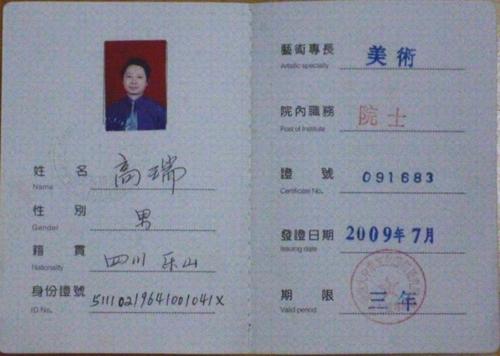 姓 名 高瑞
Name
性 别 男
Gender
籍 貫 四川 乐山
Nationality
身份證號 51110219641001041X
ID No.
藝術專長 美術
Artistic specialty
院內職務 院士
Post of Institute
證 號 091683
Certificate No.
發證日期 2009年7月
Issuing date
期 限 三年
Valid period